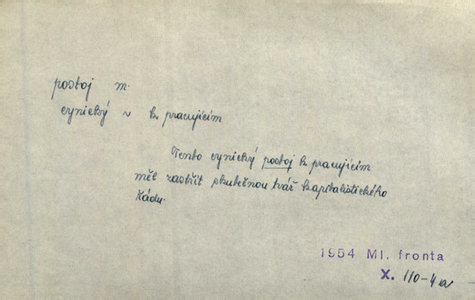 postoj m.
cynický ~ k pracujícím
Tento cynický postoj k pracujícím
měl zaostřit skutečnou tvář kapitalistického
řádu.
1954 Ml. fronta
X. 110-4a